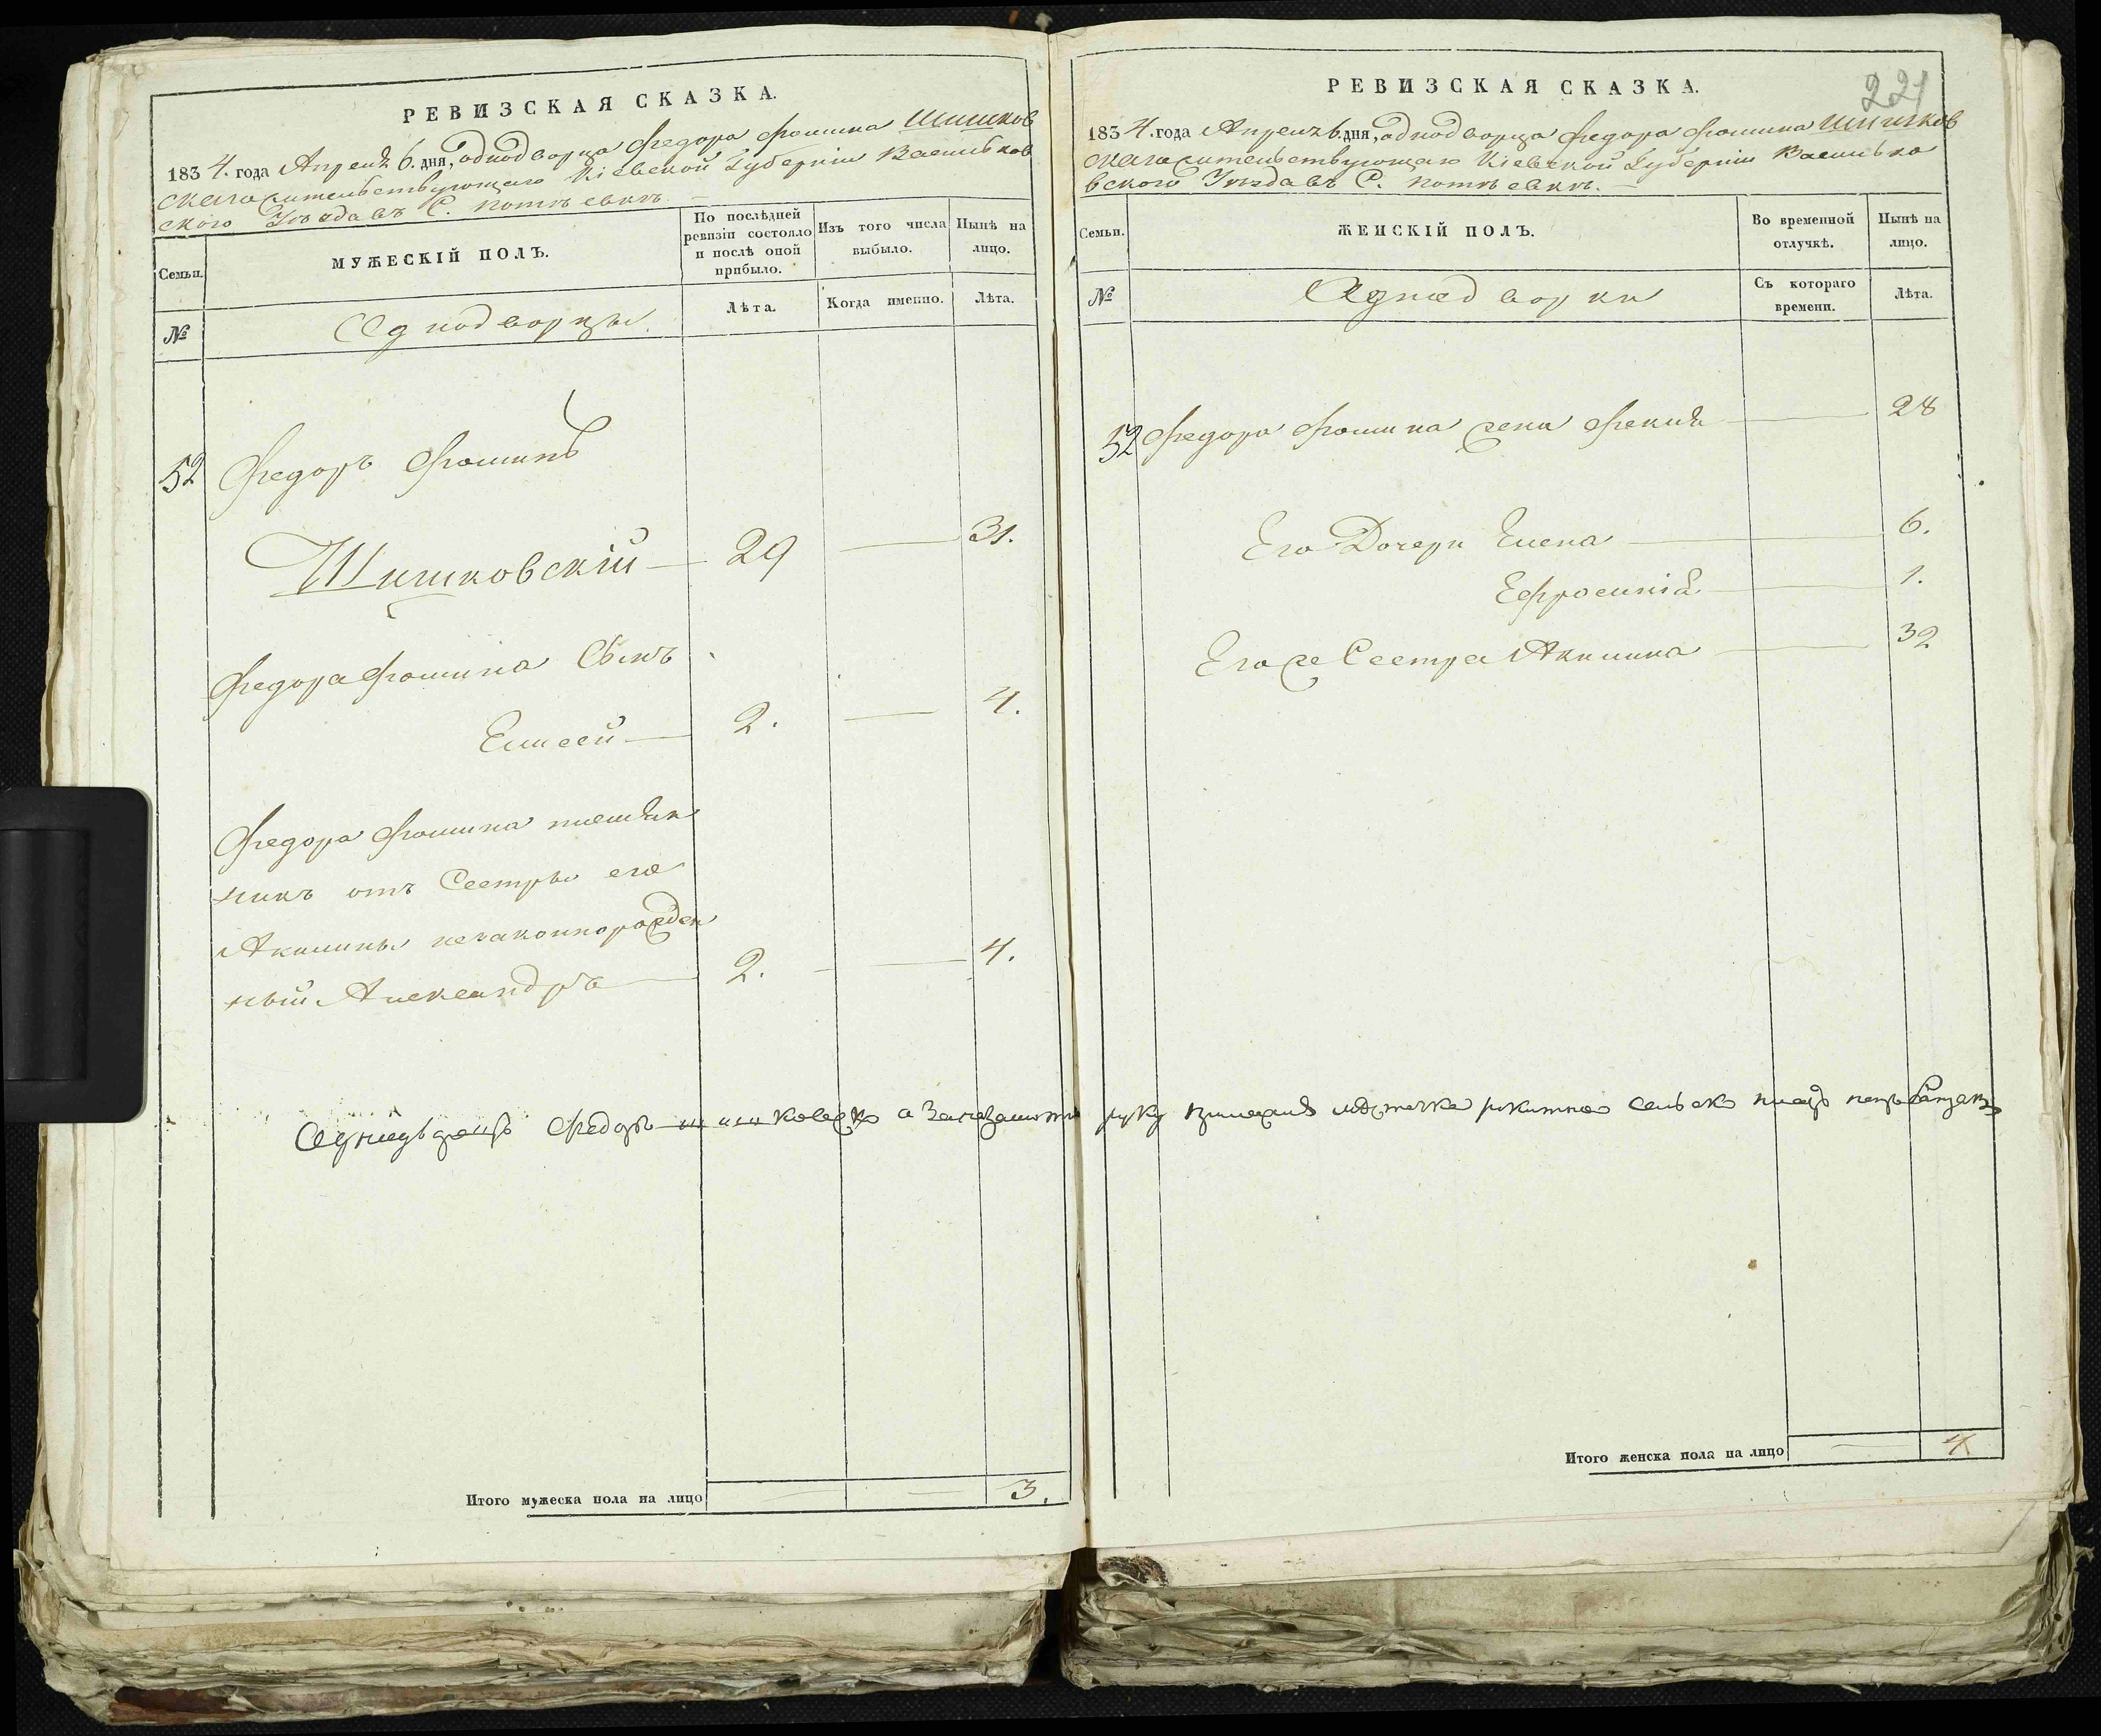 РЕВИЗСКАЯ СКАЗКА.
1834. года Апреля 6. дня, однодворца Федора Фомина Шишков
скаго жительствующаго Кіевской Губерніи Васильков
ского Уѣзда въ С.
Семьи.
МУЖЕСКІЙ ПОЛЪ.
По послѣдней ревизіи состояло и послѣ оной прибыло.
Изъ того числа выбыло.
Нынѣ на лицо.
№
Однодворцы.
Лѣта.
Когда именно.
Лѣта.
52 Федоръ Фоминъ
Шишковскій 29 31.
Федора Фомина Сынъ
Елисей 2. 4.
Федора Фомина племян
никъ отъ Сестры его
Акилины незаконнорожден
ный Александръ 2. 4.
Итого мужеска пола на лицо 3.
221
РЕВИЗСКАЯ СКАЗКА.
1834. года Апреля 6. дня, однодворца Федора Фомина Шишков
скаго жительствующаго Кіевской Губерніи Василько
вского Уѣзда въ С.
Семьи.
ЖЕНСКІЙ ПОЛЪ.
Во временной отлучкѣ.
Нынѣ на лицо.
№
Однодворки
Съ котораго времени.
Лѣта.
52 Федора Фомина жена Фекла 28
Его Дочери Елена 6.
Ефросинія 1.
Его же Сестра Акилина 32
Однодворецъ Федоръ Шишковскій а руку
Итого женска пола на лицо 4